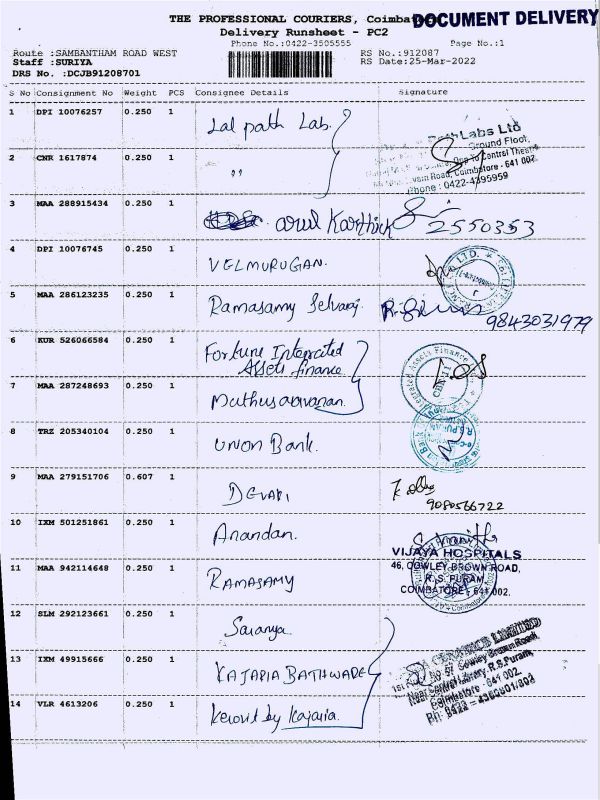 THE PROFESSIONAL COURIERS, DOCUMENT DELIVERY
Delivery Runsheet - PC2
Phone No.:0422-3505555 Page No.:1
Route :SAMBANTHAM ROAD WEST RS No.:912087
Staff :SURIYA RS Date:25-Mar-2022
DRS No. :DCJB91208701
S No Consignment No Weight PCS Consignee Details Signature
1 DPI 10076257 0.250 1 Lal path Lab.
PathLabs Ltd
Ground Floor,
Opp To Central Theatre
Road, Coimbatore - 641 002.
Phone : 0422-4395959
2 CNR 1617874 0.250 1 "
3 MAA 288915434 0.250 1 arul Karthick 2550353
4 DPI 10076745 0.250 1 VELMURUGAN.
5 MAA 286123235 0.250 1 Ramasamy Selvaraj
9843031979
6 KUR 526066584 0.250 1 Fortune Integrated
Assets finance
7 MAA 287248693 0.250 1 Muthusaravanan.
8 TRZ 205340104 0.250 1 Union Bank.
9 MAA 279151706 0.607 1 DEVAKI
9080566722
10 IXM 501251861 0.250 1 Anandan.
VIJAYA HOSPITALS
46, COWLEY BROWN ROAD,
R. S. PURAM,
COIMBATORE - 641 002.
11 MAA 942114648 0.250 1 RAMASAMY
12 SLM 292123661 0.250 1 Saranya
CERAMICS LIMITED
Cowley Brown Road,
R.S.Puram,
Coimbatore - 641 002.
13 IXM 49915666 0.250 1 KAJARIA BATHWARE
14 VLR 4613206 0.250 1 Kerovit by Kajaria.